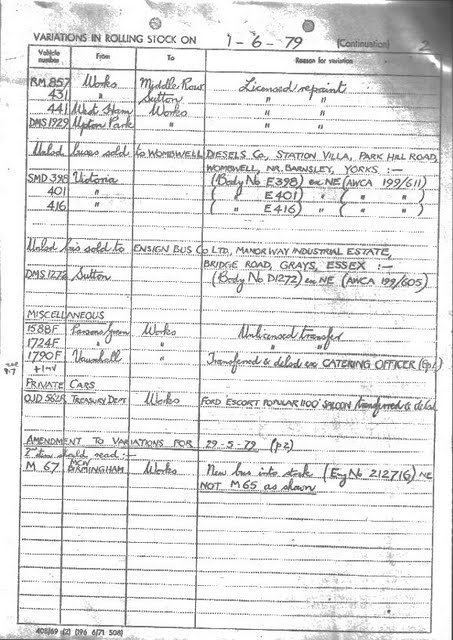 VARIATIONS IN ROLLING STOCK ON 1-6-79 (Continuation) 2
Vehicle number From To Reason for variation
RM 857 Works Middle Row Licensed repaint
431 " Sutton " "
441 West Ham Works " "
DMS 1929 Upton Park " " "
Unlsd buses sold to WOMBWELL DIESELS Co, STATION VILLA, PARK HILL ROAD,
WOMBWELL, NR. BARNSLEY, YORKS :-
SMD 398 Victoria (Body No E398) ex NE (AWCA 199/611)
401 " ( " E401 ) " ( " )
416 " ( " E416 ) " ( " )
Unlsd bus sold to ENSIGN BUS Co LTD, MANOR WAY INDUSTRIAL ESTATE,
BRIDGE ROAD, GRAYS, ESSEX :-
DMS 1276 Sutton (Body No D1272) ex NE (AWCA 199/605)
MISCELLANEOUS
1588F Parsons Green Works Unlicensed transfer
1724F " " " "
1790F Vauxhall " Transferred & delsd ex CATERING OFFICER (Gp1)
PRIVATE CARS
OJD 562R TREASURY DEPT Works FORD ESCORT POPULAR 1100 SALOON transferred & delsd
AMENDMENT TO VARIATIONS FOR 29-5-79 (p2)
Item should read :-
M 67 MCW BIRMINGHAM Works New bus into stock (Eng No 212716) NE
NOT M65 as shown
405/69 (2) (196 6/71 508)